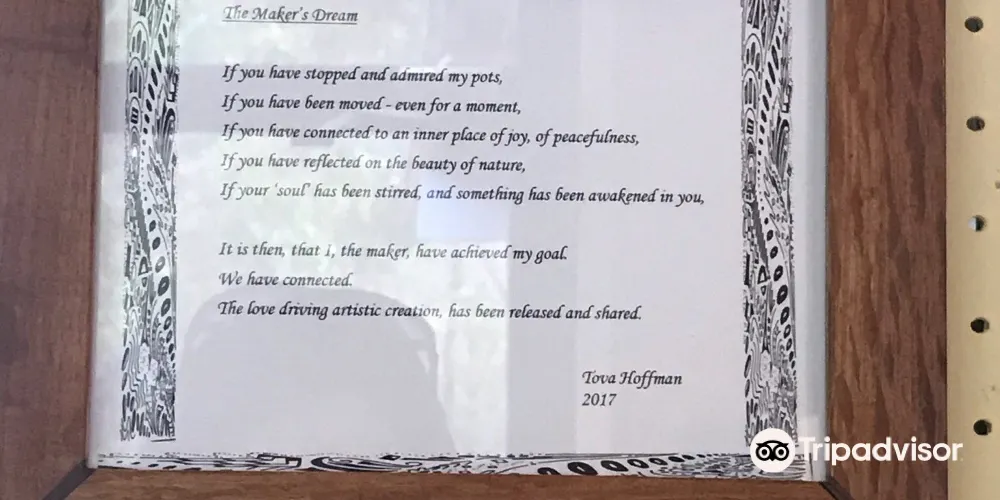 The Maker's Dream
If you have stopped and admired my pots,
If you have been moved - even for a moment,
If you have connected to an inner place of joy, of peacefulness,
If you have reflected on the beauty of nature,
If your 'soul' has been stirred, and something has been awakened in you,
It is then, that I, the maker, have achieved my goal.
We have connected.
The love driving artistic creation, has been released and shared.
Tova Hoffman
2017
Tripadvisor